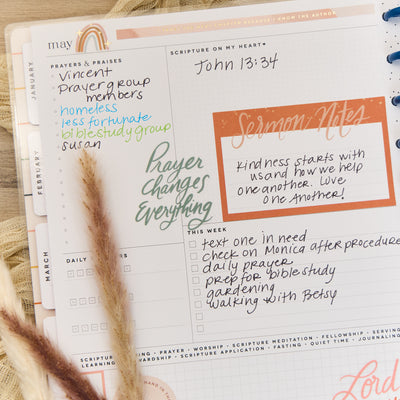 may
JANUARY
FEBRUARY
MARCH
PRAYERS & PRAISES
Vincent
Prayer group
members
homeless
less fortunate
bible study group
susan
Prayer
Changes
Everything
SCRIPTURE ON MY HEART
John 13:34
Sermon Notes
Kindness starts with
us and how we help
one another. Love
one Another!
THIS WEEK
text one in need
check on Monica after procedure
daily prayer
prep for bible study
gardening
walking with Betsy
DAILY
PRAYER • WORSHIP • SCRIPTURE MEDITATION • FELLOWSHIP • SERVING
SCRIPTURE APPLICATION • FASTING • QUIET TIME • JOURNALING
Lord